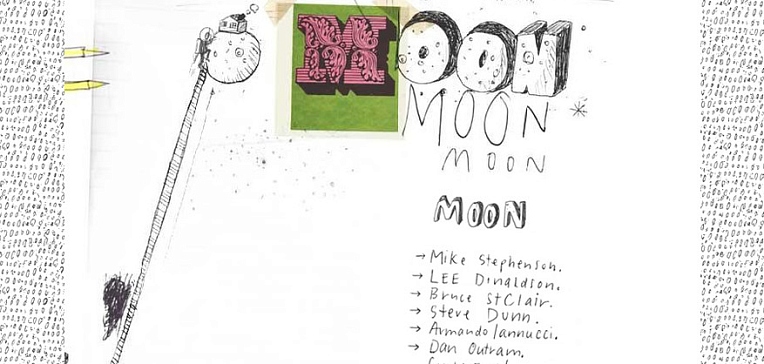 MOON
MOON
MOON
MOON
→ Mike Stephenson.
→ LEE Dinaldson.
→ Bruce StClair.
→ Steve Dunn.
→ Armando Iannucci.
→ Dan Outram.